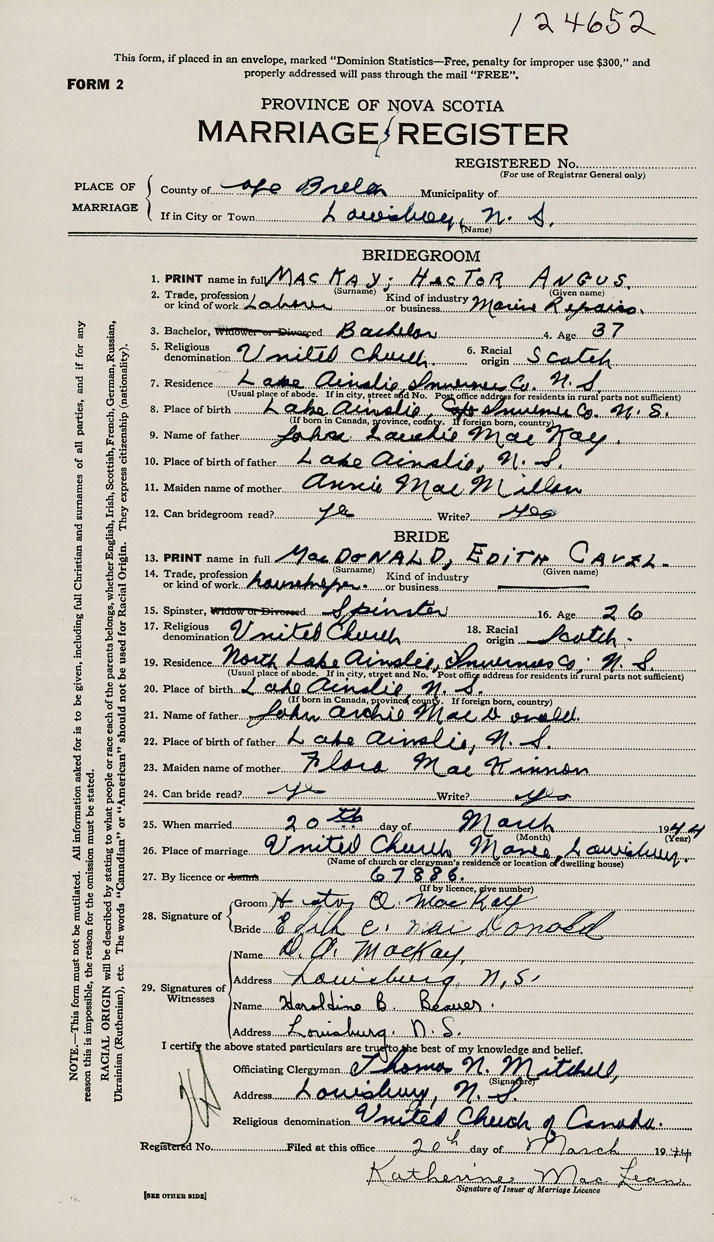 124652
This form, if placed in an envelope, marked "Dominion Statistics—Free, penalty for improper use $300," and
properly addressed will pass through the mail "FREE".
FORM 2
PROVINCE OF NOVA SCOTIA
MARRIAGE REGISTER
REGISTERED No.
(For use of Registrar General only)
PLACE OF MARRIAGE
County of Cape Breton Municipality of
If in City or Town Louisburg, N. S.
(Name)
BRIDEGROOM
1. PRINT name in full MACKAY; HECTOR ANGUS.
(Surname) (Given name)
2. Trade, profession or kind of work Laborer Kind of industry or business Marine Repairs.
3. Bachelor, Widower or Divorced Bachelor 4. Age 37
5. Religious denomination United Church. 6. Racial origin Scotch
7. Residence Lake Ainslie, Inverness Co. N. S.
(Usual place of abode. If in city, street and No. Post office address for residents in rural parts not sufficient)
8. Place of birth Lake Ainslie, Inverness Co. N. S.
(If born in Canada, province, county. If foreign born, country)
9. Name of father John Lauchie MacKay.
10. Place of birth of father Lake Ainslie, N. S.
11. Maiden name of mother Annie MacMillan
12. Can bridegroom read? yes Write? yes
BRIDE
13. PRINT name in full MacDONALD, EDITH CAVEL.
(Surname) (Given name)
14. Trade, profession or kind of work housekeeper. Kind of industry or business
15. Spinster, Widow or Divorced Spinster 16. Age 26
17. Religious denomination United Church 18. Racial origin Scotch.
19. Residence North Lake Ainslie, Inverness Co; N. S.
(Usual place of abode. If in city, street and No. Post office address for residents in rural parts not sufficient)
20. Place of birth Lake Ainslie, N. S.
(If born in Canada, province, county. If foreign born, country)
21. Name of father John Archie MacDonald.
22. Place of birth of father Lake Ainslie, N. S.
23. Maiden name of mother Flora MacKinnon
24. Can bride read? yes Write? yes
25. When married 20th day of March 1944
(Month) (Year)
26. Place of marriage United Church Manse, Louisburg.
(Name of church or clergyman's residence or location of dwelling house)
27. By licence or banns 67886.
(If by licence, give number)
28. Signature of
Groom Hector A. MacKay
Bride Edith C. MacDonald
29. Signatures of Witnesses
Name D. A. MacKay,
Address Louisburg, N, S.
Name Haroldine B. Beaver.
Address Louisburg. N. S.
I certify the above stated particulars are true to the best of my knowledge and belief.
Officiating Clergyman Thomas N. Mitchell,
(Signature)
Address Louisburg, N. S.
Religious denomination United Church of Canada.
Registered No. Filed at this office 20th day of March 1944
Katherine MacLean
Signature of Issuer of Marriage Licence
[SEE OTHER SIDE]
NOTE.—This form must not be mutilated. All information asked for is to be given, including full Christian and surnames of all parties, and if for any
reason this is impossible, the reason for the omission must be stated.
RACIAL ORIGIN will be described by stating to what people or race each of the parents belongs, whether English, Irish, Scottish, French, German, Russian,
Ukrainian (Ruthenian), etc. The words "Canadian" or "American" should not be used for Racial Origin. They express citizenship (nationality).